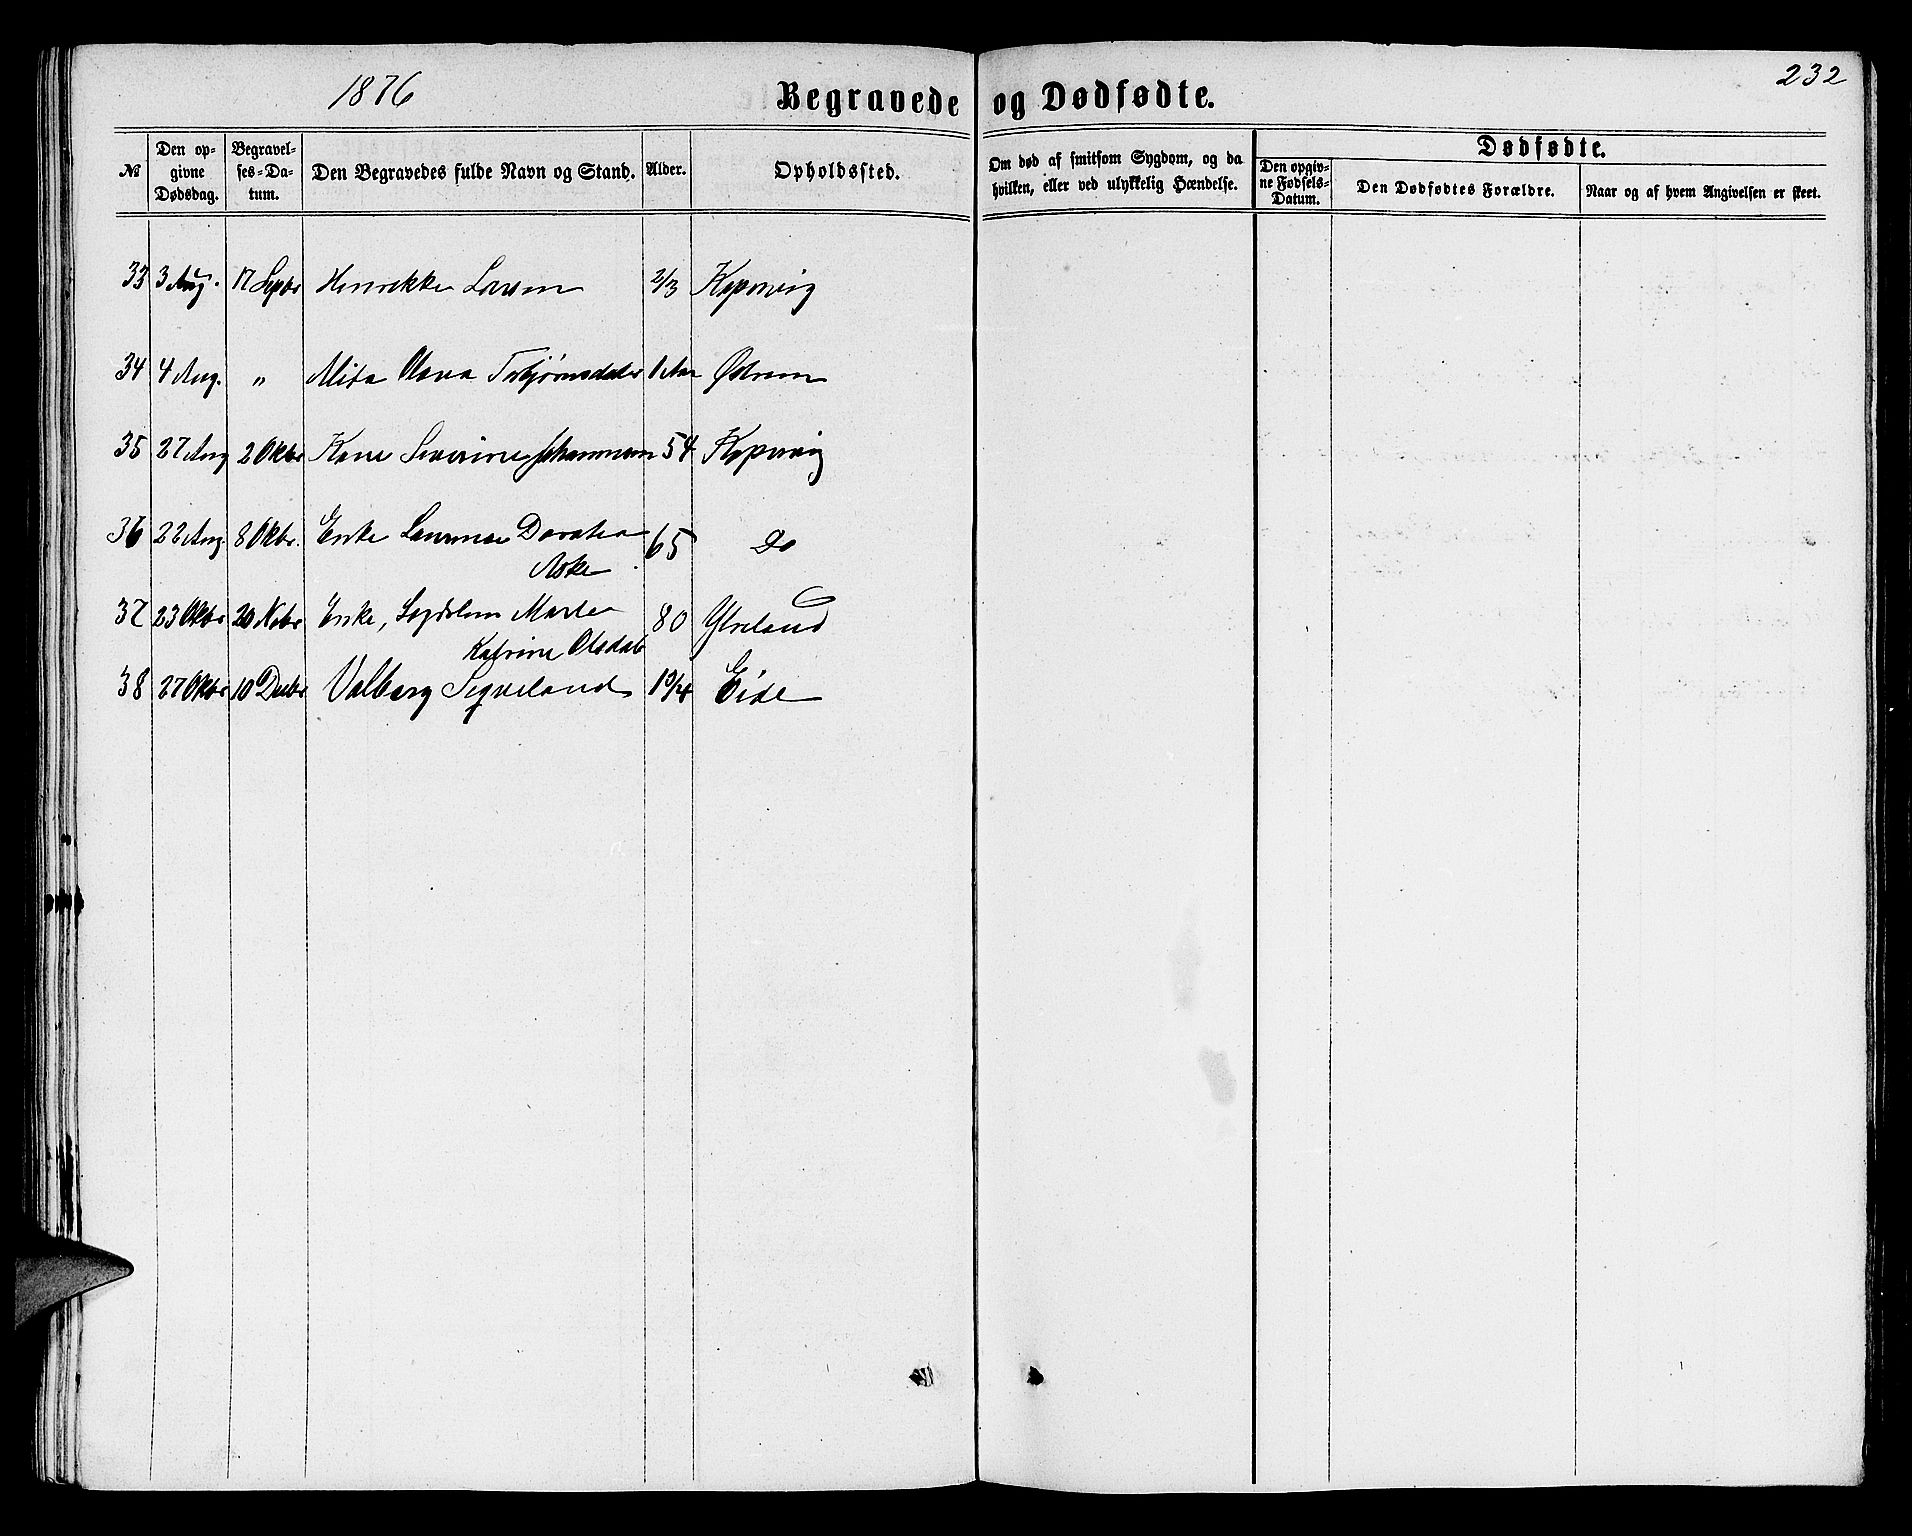 1876
Begravede og Dødfødte.
232
№
Den op-
givne
Dødsdag.
Begravel-
ses-Da-
tum.
Den Begravedes fulde Navn og Stand.
Alder.
Opholdssted.
Om død af smitsom Sygdom, og da
hvilken, eller ved ulykkelig Hændelse.
Dødfødte.
Den opgiv-
ne Fødsels-
Datum.
Den Dødfødtes Forældre.
Naar og af hvem Angivelsen er skeet.
33 3 Aug. 17 Septbr Henrikke Larsen 2/3 Kopervig
34 4 Aug. " Olava Torbjørnsdatter 1 Aar Østrem
35 27 Aug 2 Oktbr Kane Severine Johannesen 54 Kopervig
36 22 Aug 8 Oktbr. Enke Dorothea 65 Do
Aske
37 23 Oktbr 20 Novbr Enke, Marta 80 Ytreland
Katrine Olsdat
38 27 Oktbr 10 Decbr Valborg Sqveland 1 3/4 Eide